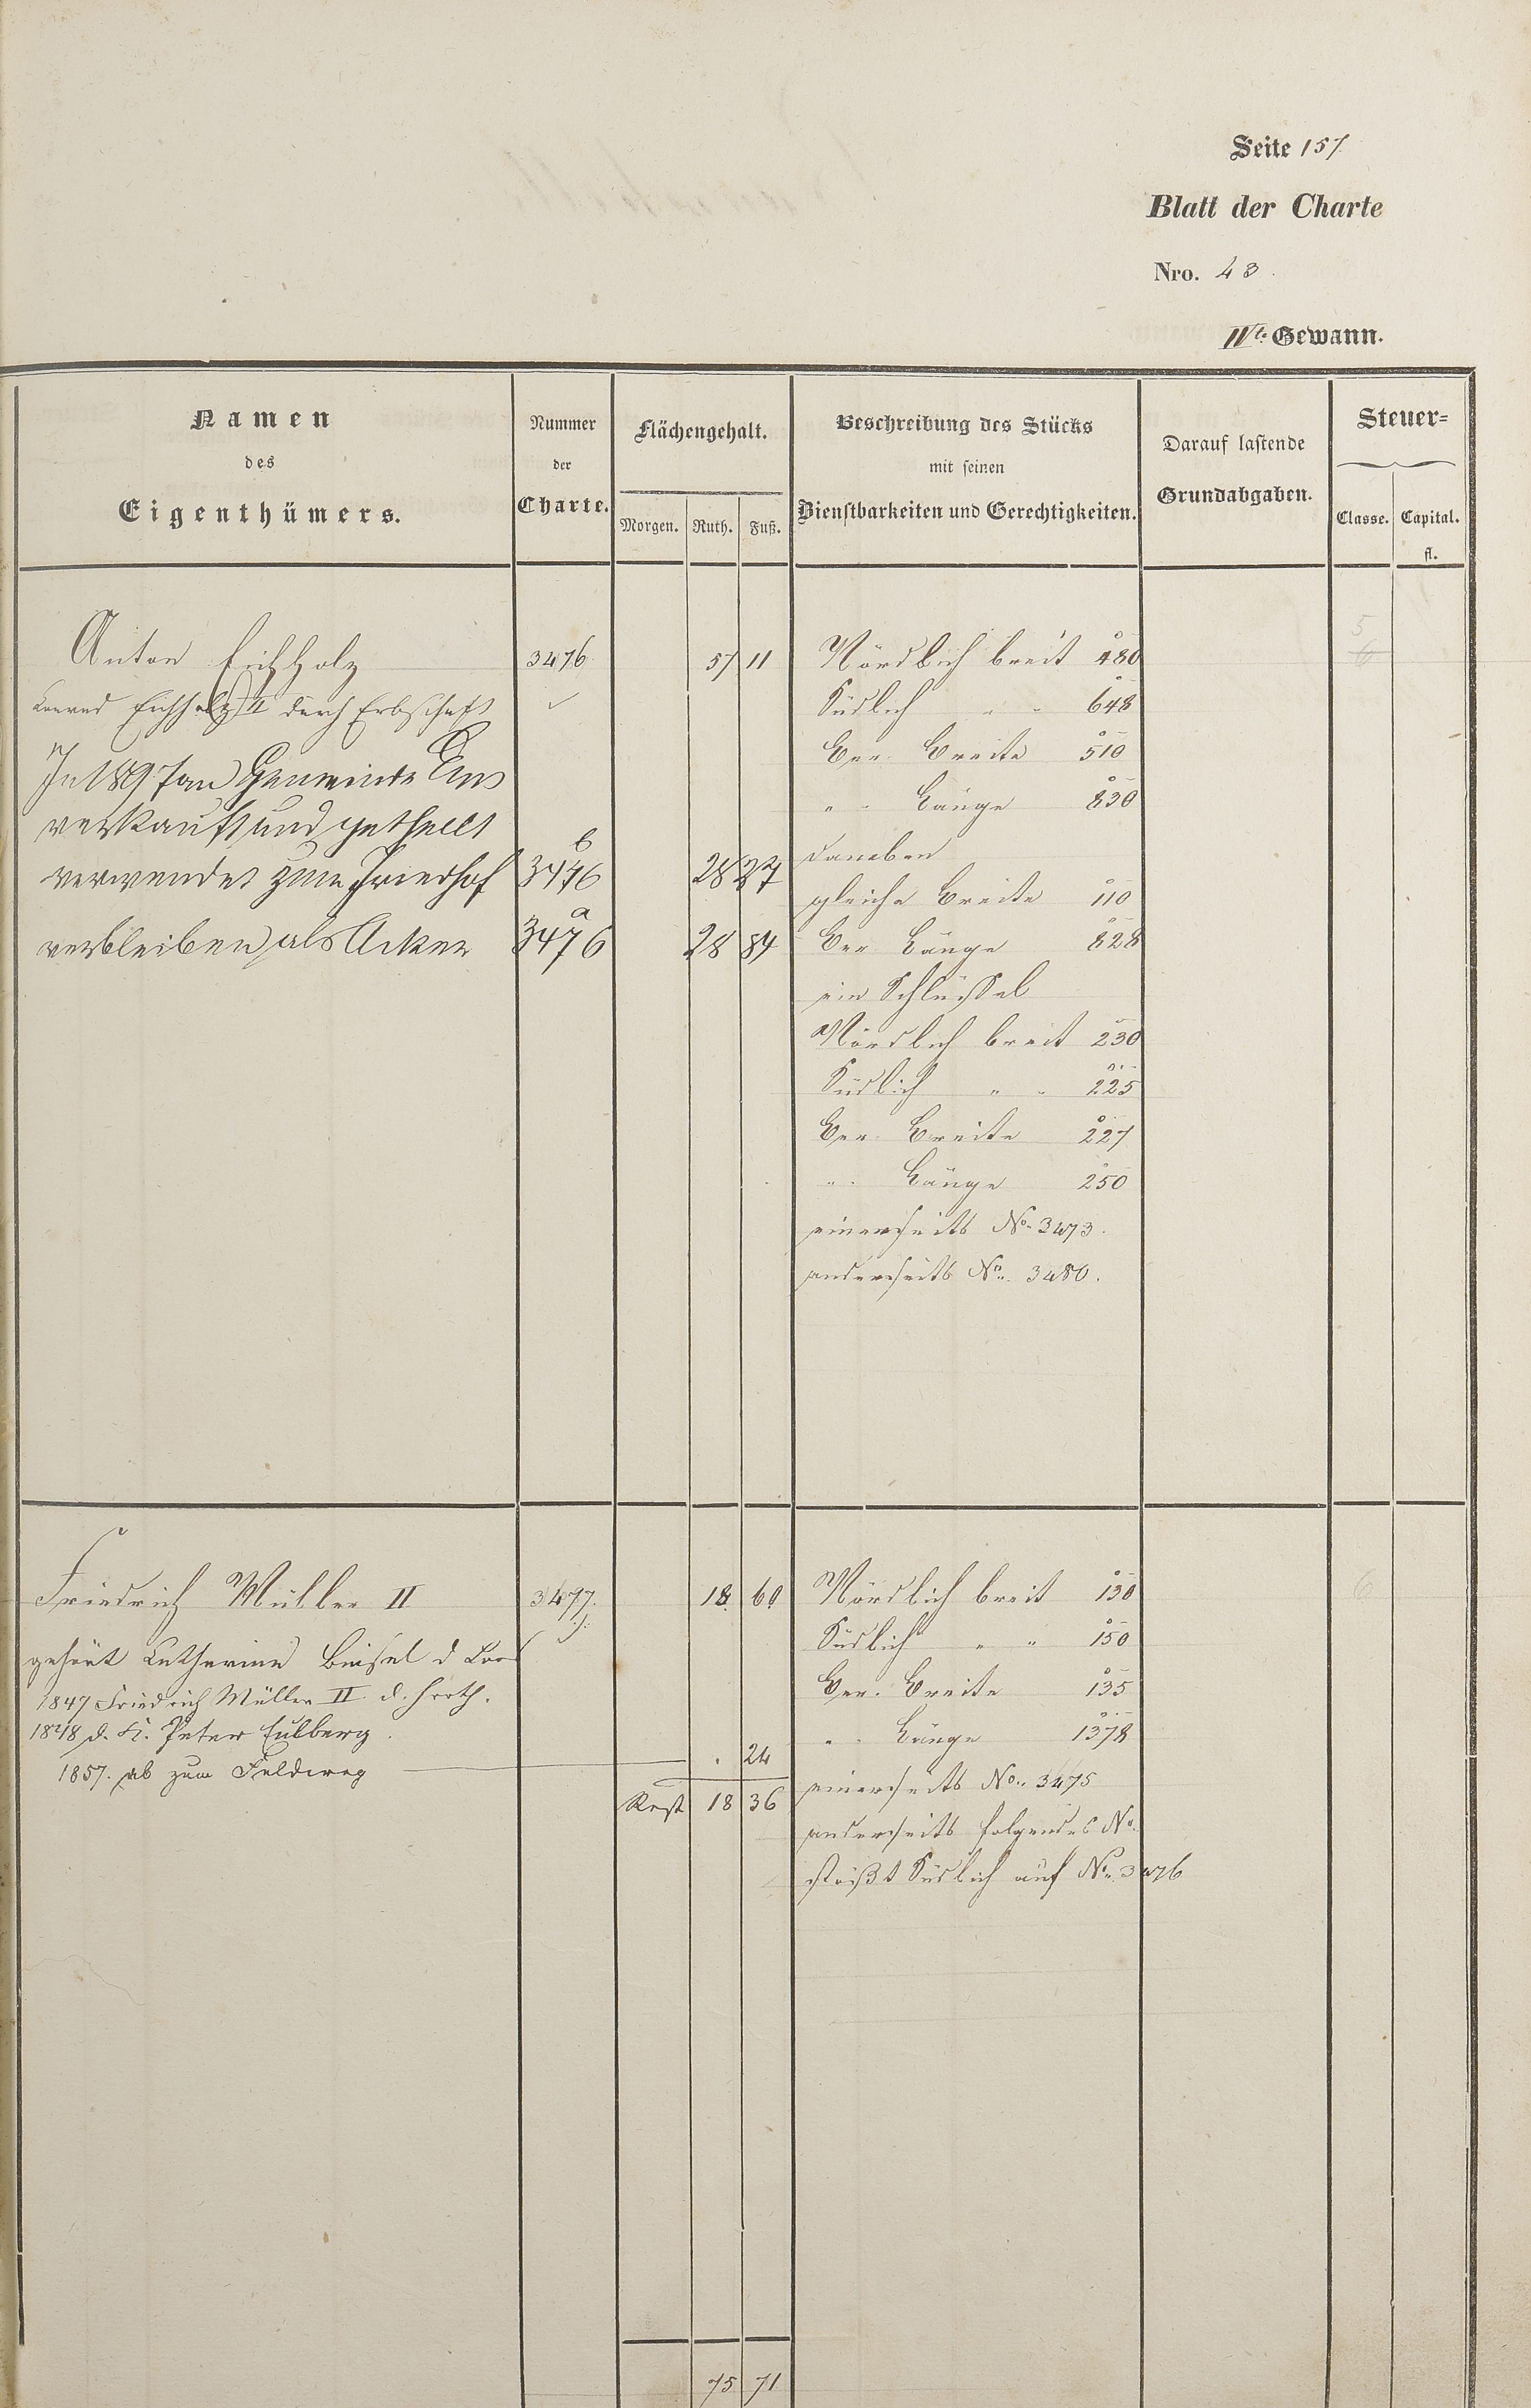 Seite 157
Blatt der Charte
Nro. 43.
IVte Gewann.
Namen
des
Eigenthümers.
Nummer
der
Charte.
Flächengehalt.
Morgen. Ruth. Fuß.
Beschreibung des Stücks
mit seinen
Dienstbarkeiten und Gerechtigkeiten.
Darauf lastende
Grundabgaben.
Steuer=
Classe. Capital.
fl.
Anton Eichholz 3476. 57 11 Nördlich breit 480 5
6
Conrad Eichholz II durch Erbschaft Südlich " " 648
Ber. Breite 510
In 1897 an Gemeinde Ems " " Länge 830
verkauft und getheilt daneben
verwendet zum Friedhof 3476 b 28 27 gleiche Breite 110
verbleiben als Acker 3476 a 28 84 Ber. Länge 828
ein Schlüssel
Nördlich breit 230
Südlich " " 225
Ber. Breite 227
" " Länge 250
einerseits No. 3473.
anderseits No. 3480.
Friedrich Müller II 3477. 18 60 Nördlich breit 130 6
Südlich " " 150
gehört Catharina Beisel d
Ber. Breite 135
1847 Friedrich Müller II. d.
1848 d. K. Peter Eulberg. " " Länge 1378
1857. ab zum Feldweg . 24
einerseits No. 3475
Rest 18 36
anderseits folgendes No.
stößt Südlich auf No. 3476
75 71